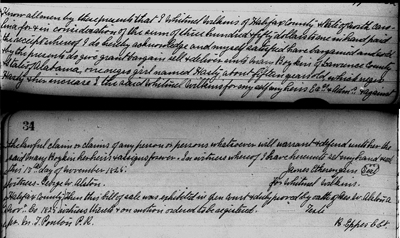 Know all men by these presents that I Whitmel Wilkins of Halifax County State of North Caro-
lina for & in consideration of the sum of three hundred fifty dollars to me in hand paid
the receipt whereof I do hereby acknowledge and myself satisfied have bargained and sold &
by the presents do give grant bargain sell & deliver unto Mary Boykin of Lawrence County
State of Alabama one negro girl named Hasty about fifteen years old which negro
Hasty & her increase I the said Whitmel Wilkins for my self my heirs Exrs & Admrs against
34
the lawful claim or claims of any person or persons whatsoever will warrant & defend unto her the
said Mary Boykin her heirs & assigns forever. In witness whereof I have hereunto set my hand and
this 18th day of November 1826.
Witness. George W. Alston. for Whitmel Wilkins.
Halifax County Then this bill of sale was exhibited in open court & duly proved by oath of Geo. W. Alston a
Novr. Co. 1826 witness thereto & on motion ordered to be registered. Teste
pr. J. Ponton P.R. R Eppes CC.